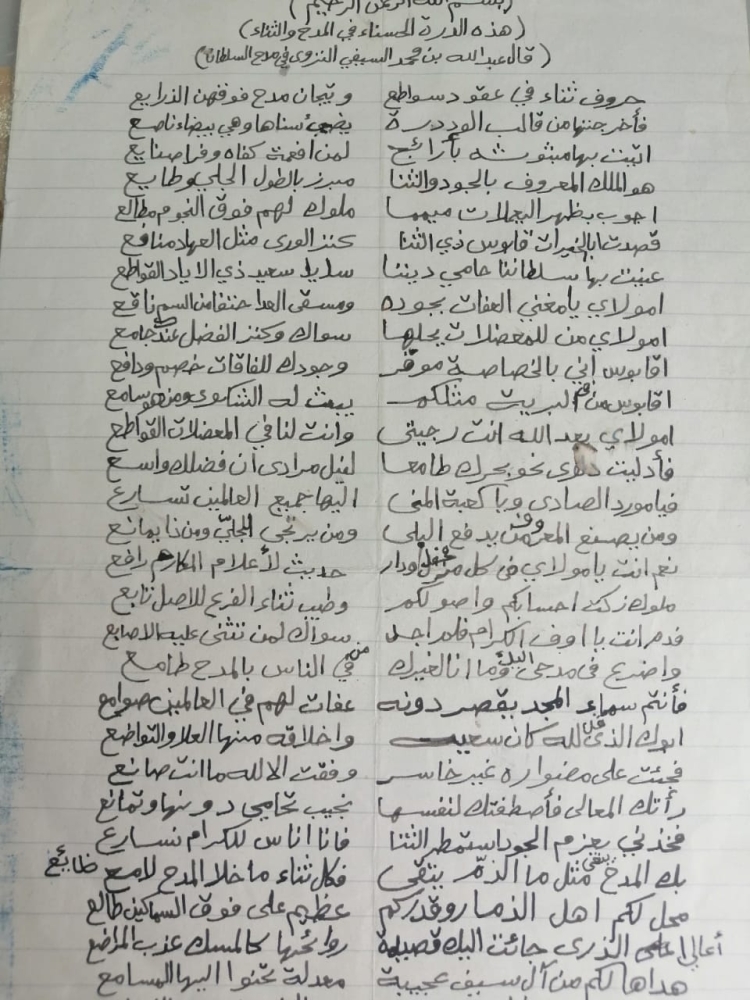 (بسم الله الرحمن الرحيم)
(هذه الدرة الحسناء في المدح والثناء)
(قال عبدالله بن محمد السيفي النزوى في مدح السلطان)
حروف ثناء في عقود سواطع وتيجان مدح فوقهن الذرايع
فأخرجتها من قالب الود درة يضيء سناها وهي بيضاء ناصع
اتيت بها مبثوثه بأرائج لمن افعمة كفاه وفرا صنايع
هو الملك المعروف بالجود والثنا مبرز بالطول الجلي وطايع
اجوب بظهر اليعملات ميمما ملوك لهم فوق النجوم مطالع
قصدت بالخيرات قابوس ذي الثنا كنز الورى مثل العهاد منافع
عنيت بها سلطاننا حامي ديننا سليل سعيد ذي الاياد القواطع
امولاي يا مغني العفات بجوده ومسقى العدا حتفا من السم ناقع
امولاي من للمعضلات يحلها سواك وكنز الفضل عندكم جامع
اقابوس اني بالخصاصة موقر وجودك للفاقات خصم ودافع
اقابوس من في البريت مثلكم يبث له الشكوى ومن هو سامع
امولاي بعد الله انت رجيتي وانت لنا في المعضلات القواطع
فأدليت دلوى نحو بحرك طامعا لنيل مرادى أن فضلك واسع
فيا مورد الصادى ويا كعبة المنى اليها جميع العالمين تسارع
ومن يصنع المعروف من يدفع البلى ومن يرتجي الجلي ومن ذا يمانع
نعم انت يا مولاي في كل محفل ودار حديث لأعلام المكارم رافع
ملوك زكت احسابكم واصولكم وطيب ثناء الفرع للاصل تابع
فدم انت يا اوف الكرام فلم اجد سواك لمن تثنى عليه الاصابع
واضرع في مدحي اليك وما انا لغيرك من في الناس بالمدح طامع
فأنتم سماء المجد يقصر دونه عفات لهم في العالمين صوامع
ابوك الذي لله كان سعيه واخلاقه منها العلا والتواضع
فجئت على مضواره غير خاسر وفقت الا لله ما انت صانع
رأتك المعالى فأصطفتك لنفسها نجيب تحامي دونها وتمانع
فخذني بعزم الجود استمطر الثنا فانا اناس للكرام نسارع
بك المدح يبقى مثل ما الذم ينتفى فكل ثناء ما خلا المدح لامع ضائع
محل لكم اهل الذمار وقدركم عظيم على فوق السماكين طالع
أعالي الذرى جائت اليك قصيدة روائحها كالمسك عذب المراضع
هداها لكم من آل سيف عجيبة معدلة تحنوا اليها المسامع